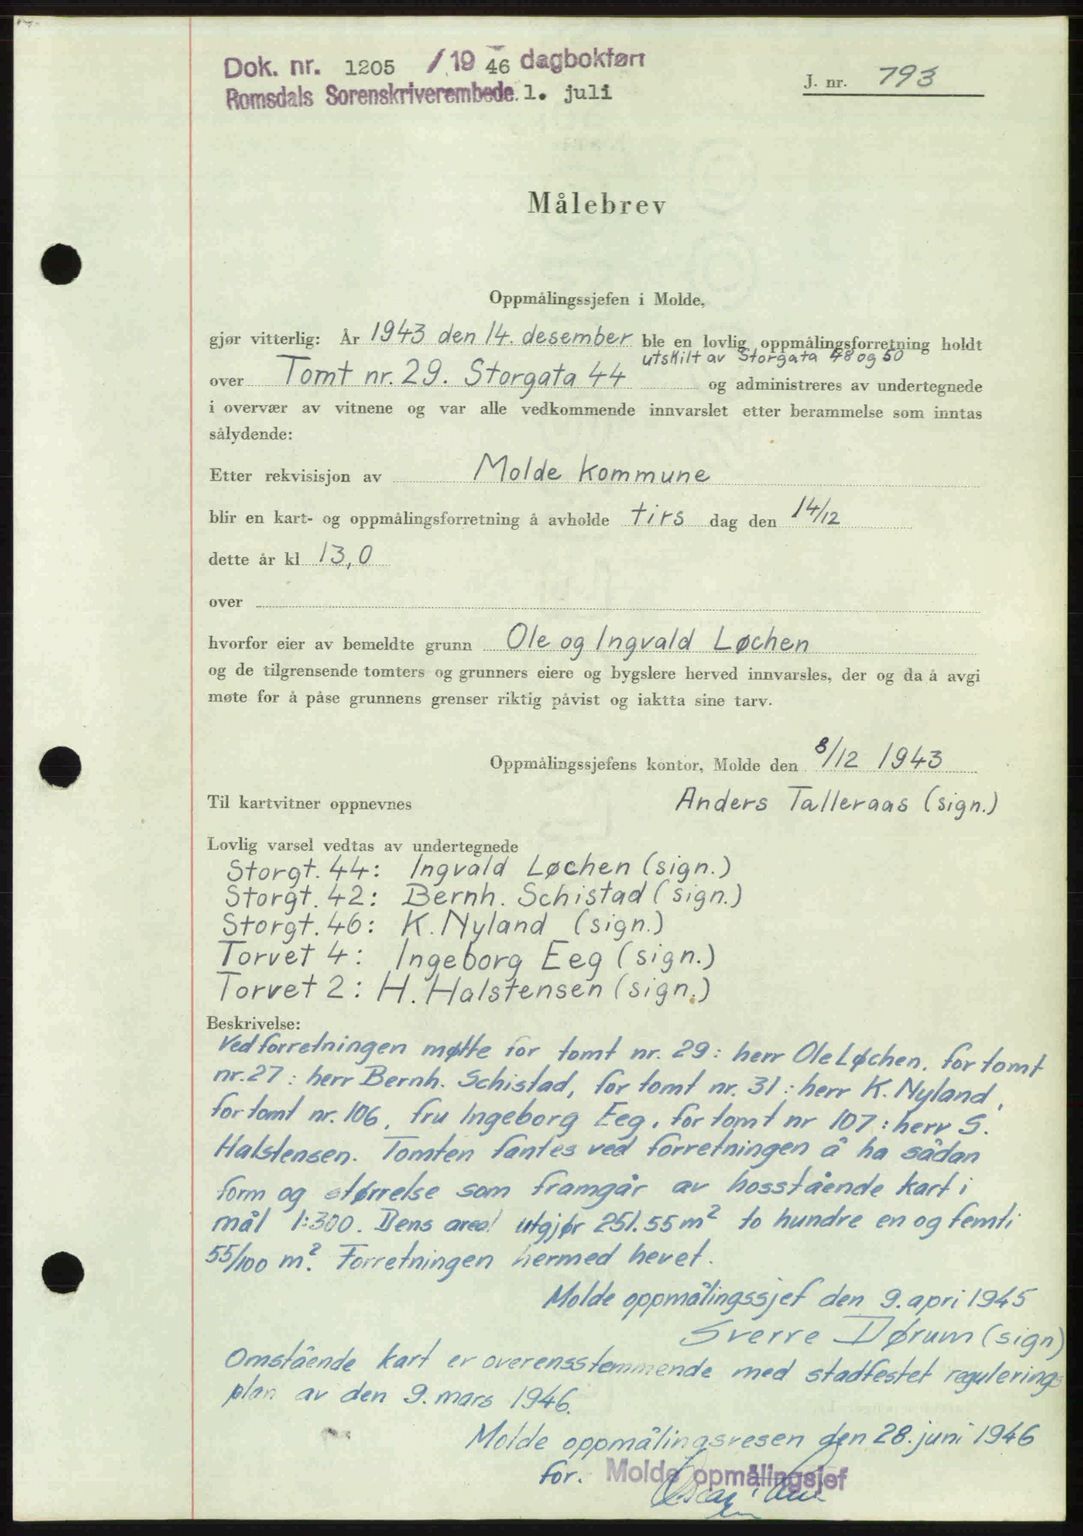 Dok. nr. 1205 / 19 46 dagbokført
Romsdals Sorenskriverembede. 1. juli
J. nr. 793
Målebrev
Oppmålingssjefen i Molde,
gjør vitterlig: År 1943 den 14. desember ble en lovlig oppmålingsforretning holdt
utskilt av Storgata 48 og 50
over Tomt nr. 29. Storgata 44 og administreres av undertegnede
i overvær av vitnene og var alle vedkommende innvarslet etter berammelse som inntas
sålydende:
Etter rekvisisjon av Molde kommune
blir en kart- og oppmålingsforretning å avholde tirs dag den 14/12
dette år kl 13,0
over
hvorfor eier av bemeldte grunn Ole og Ingvald Løchen
og de tilgrensende tomters og grunners eiere og bygslere herved innvarsles, der og da å avgi
møte for å påse grunnens grenser riktig påvist og iaktta sine tarv.
Oppmålingssjefens kontor, Molde den 8/12 1943
Til kartvitner oppnevnes Anders Talleraas (sign.)
Lovlig varsel vedtas av undertegnede
Storgt. 44: Ingvald Løchen (sign.)
Storgt. 42: Bernh. Schistad (sign.)
Storgt. 46: K. Nyland (sign.)
Torvet 4: Ingeborg Eeg (sign.)
Torvet 2: H. Halstensen (sign.)
Beskrivelse:
Ved forretningen møtte for tomt nr. 29: herr Ole Løchen, for tomt
nr. 27: herr Bernh. Schistad, for tomt nr. 31: herr K. Nyland,
for tomt nr. 106, fru Ingeborg Eeg, for tomt nr 107: herr S.
Halstensen. Tomten fantes ved forretningen å ha sådan
form og størrelse som framgår av hosstående kart i
mål 1:300. Dens areal utgjør 251.55 m² to hundre en og femti
55/100 m². Forretningen hermed hevet.
Molde oppmålingssjef den 9. april 1945
Sverre Dørum (sign)
Omstående kart er overensstemmende med stadfestet regulerings
plan av den 9. mars 1946.
Molde oppmålingsvesen den 28. juni 1946
for. Molde opmålingsjef